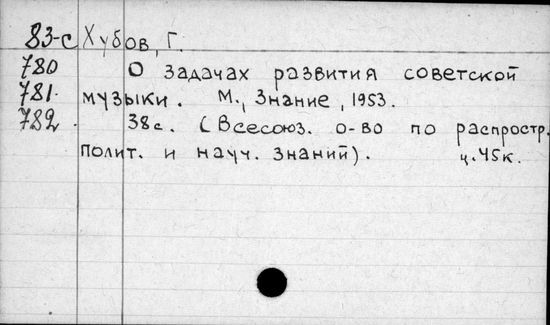 83-с Хубов, Г.
780 О задачах развития советской
781. музыки. М., Знание, 1953.
782. 38с. (Всесоюз. о-во по распростр.
полит. и науч. знаний). ц.45к.